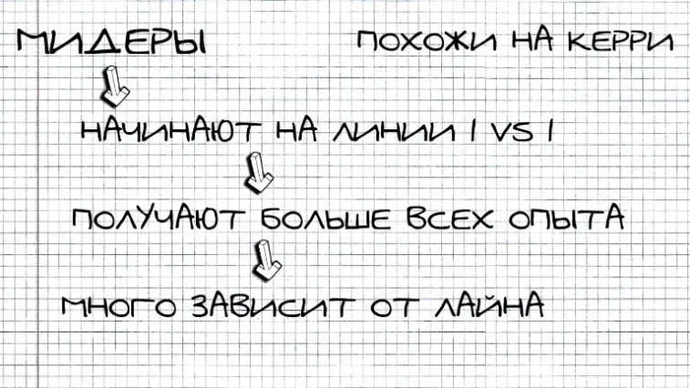 МИДЕРЫ ПОХОЖИ НА КЕРРИ
НАЧИНАЮТ НА ЛИНИИ 1 VS 1
ПОЛУЧАЮТ БОЛЬШЕ ВСЕХ ОПЫТА
МНОГО ЗАВИСИТ ОТ ЛАЙНА